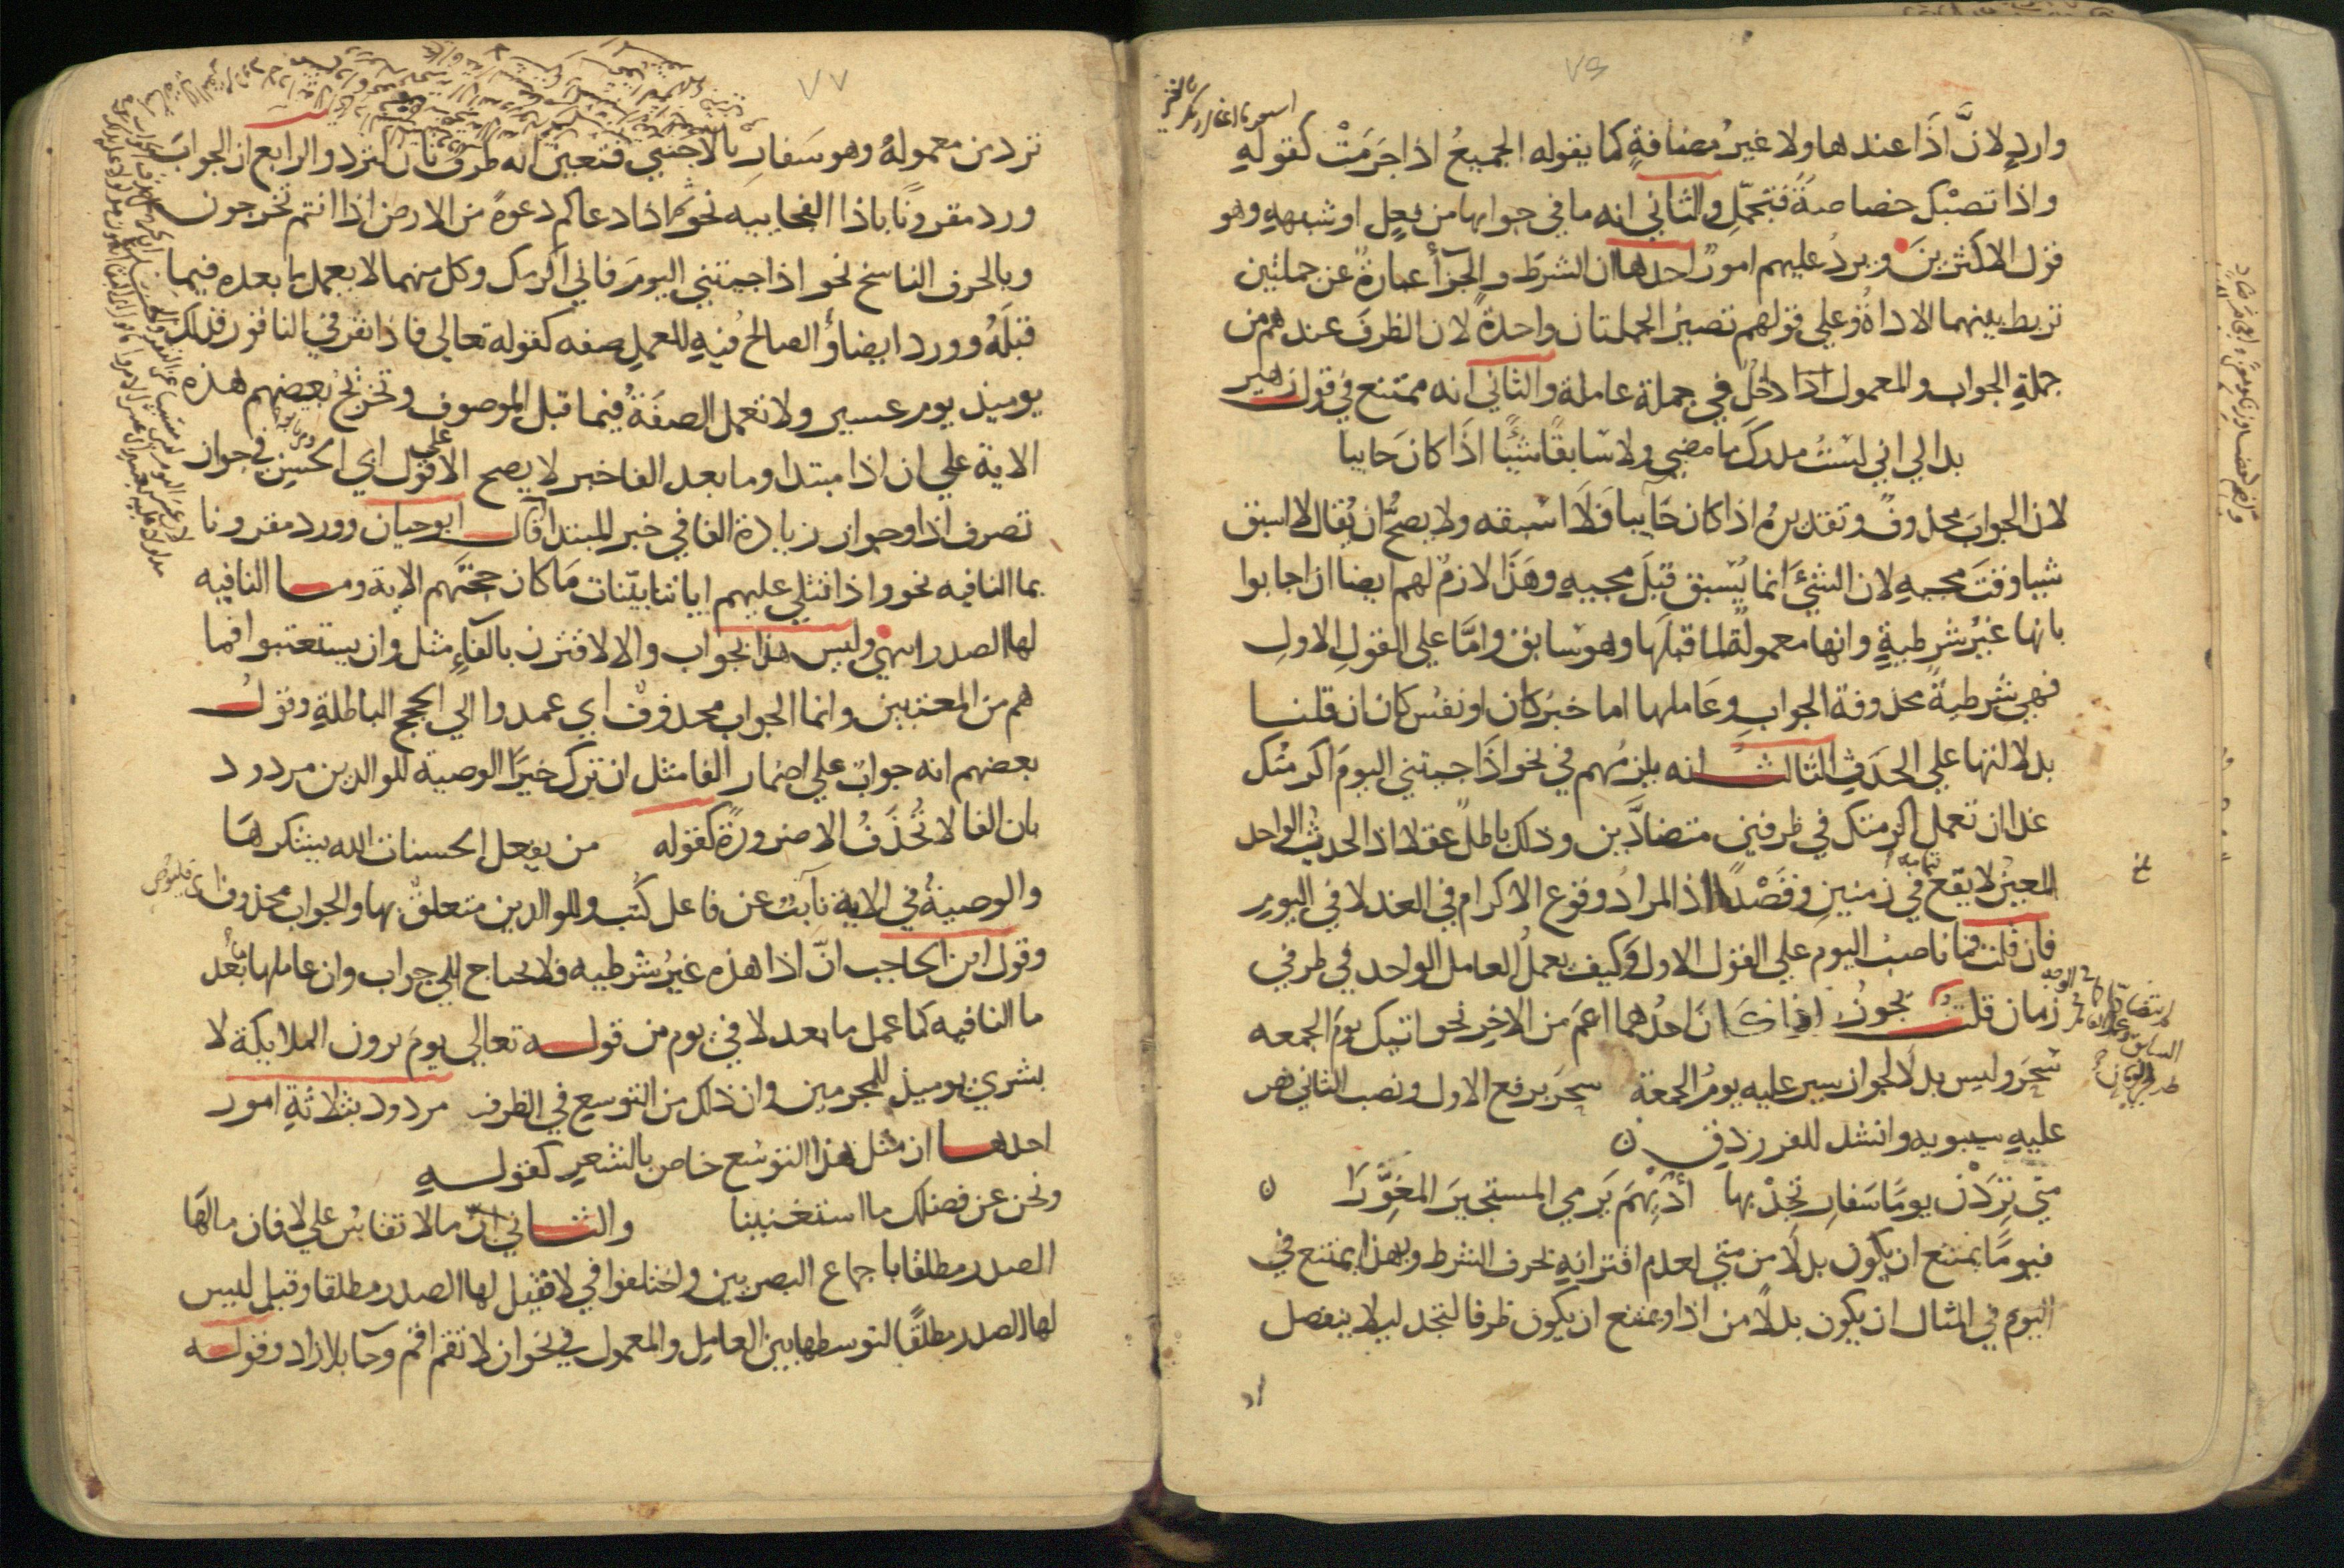 وارد لانَّ اذَا عندها ولا غيرُ مضافةٍ كما يقوله الجميعُ اذا جَزَمَتْ كقوله
واذا تصبْكَ خصاصةٌ فتجمّلِ والثاني انه ما في جوابها من فعلٍ او شبههِ وهو
قول الاكثرينَ ويردُ عليهم امورٌ احدها ان الشرطَ والجزأ عبارةٌ عن جملتين
تربط بينهما الاداةُ وعلى قولهم تصيرُ الجملتان واحدةً لان الظرفَ عندهم من
جملةِ الجواب والمعمول داخلٌ في جملة عامله والثاني انه ممتنع في قول زهير
بدا لي اني لسْتُ مدركَ ما مضي ولا سَابقًا شيًّا اذَا كان جَاييا
لان الجوابَ محذوفٌ وتقديرهُ اذا كان جَاييا فلَا اسبقه ولا يصحُّ ان يُقال لا اسبق
شيا وقتَ مجيهِ لان الشيَ انما يُسْبق قبلَ مجييهِ وهَذَا لازمٌ لهم ايضا ان اجابوا
بانها غيرُ شرطيةٍ وانها معمولةٌ لما قبلَها وهو سَابق وامَّا علي القولِ الاولِ
فهي شرطيةٌ محذوفة الجوابِ وعَاملها اما خبرُ كان او نفسُ كان ان قلنا
بدلالتها علي الحدَثِ الثالث انه يلزمُهم في نحو اذَا جيتني اليومَ اكرمتُك
غدا ان تعمل اكرمتك في ظرفين متضادَّين وذلك باطلٌ عقلا اذ الحدثُ الواحد
المعينُ لا يقع في زمنينِ وقَصْدًا اذ المرادُ وقوع الاكرام في الغد لا في اليومِ
فان قلت فما ناصبُ اليوم علي القول الاول وكيف يعملُ العامل الواحد في ظرفي
زمان قلتُ يجوزُ اذا كانَ احدُهما اعمَ من الاخِرِ نحو اتيك يومَ الجمعه
سَحَرَ وليس بدلَا لجواز سير عليه يومُ الجمعة سحَرَ برفع الاول ونصب الثاني نص
عليهِ سيبويه وانشد للفرزدقِ ن
متي تَرِدَنْ يومًا سَفارِ تجدْ بها أدَيْهمَ يَرمي المستجيزَ المعَوَّرا ن
فيومًا يمتنع ان يكون بدلَا من متي لعدم اقترانهِ بحرف الشرط ولهذا يمتنع في
اليوم في المثال ان يكون بدلًا من اذا ويمتنع ان يكون ظرفا لتجد ليلا ينفصل
ترد من معمولهُ وهو سَفارِ بالاجنبي فتعين انه ظرف ثان لترد والرابع ان الجوابَ
ورد مقرونًا باذا الفجاييه نحو ثم اذا دعاكم دعوةً من الارض اذا انتم تخرجون
وبالحرف الناسخ نحو اذا جيتني اليومَ فاني اكرمك وكل منهما لا يعمل ما بعده فيما
قبلَهُ وورد ايضا والصالحُ فيهِ للعملِ صفه كقوله تعالي فاذا نقر في الناقور فذلك
يوميذ يوم عسير ولا تعمل الصفَةُ فيما قبل الموصوف وتخريج بعضهم هذه
الاية علي ان اذا مبتدا وما بعد الفا خبر لا يصح الا علي قول ابي الحسن في جواز
تصرف اذا وجواز زيادة الفا في خبر المبتدا قال ابو حيان وورد مقرونا
بما النافيه نحو واذا تتلي عليهم اياتنا بيّنات مَا كان حجتَهم الاية وما النافيه
لها الصدر انتهي وليس هذا بجواب والا لاقترن بالفاءِ مثل وان يستعتبوا فما
هم من المعتبين وانما الجواب محذوفٌ اي عمدوا الي الحجج الباطلةِ وقول
بعضهم انه جوابٌ علي اضمار الفا مثل ان ترك خيرًا الوصية للوالدين مردود
بان الفا لا تُحذَفُ الا ضرورةً كقوله من يفعل الحسنات الله يشكرهَا
والوصيةُ في الاية نَآيبٌ عن فاعل كُتب وللوالدين متعلقٌ بها والجواب محذوف اي فليوص
وقول ابن الحاجب انّ اذا هذه غيرُ شرطيه فلا تحتاج الي جواب وان عاملها ما بعد
ما النافيه كما عمل ما بعد لا في يوم من قوله تعالي يومَ يرون الملايكة لا
بشري يوميذ للمجرمين وان ذلك من التوسع في الظرف مردود بثلاثةِ امور
احدها ان مثل هذا التوسُّع خاص بالشعرِ كقوله
ونحن عن فضلك ما استغنينا والثاني انّ ما لا تقاسُ علي لا فان ما لهَا
الصدر مطلقًا باجماع البصريين واختلفوا في لا فقيل لها الصدر مطلقا وقيل ليس
لها الصدر مطلقًا لتوسطها بين العامِل والمعمول في نحو ان لا تقم اقم وجَا بلا زاد وقوله